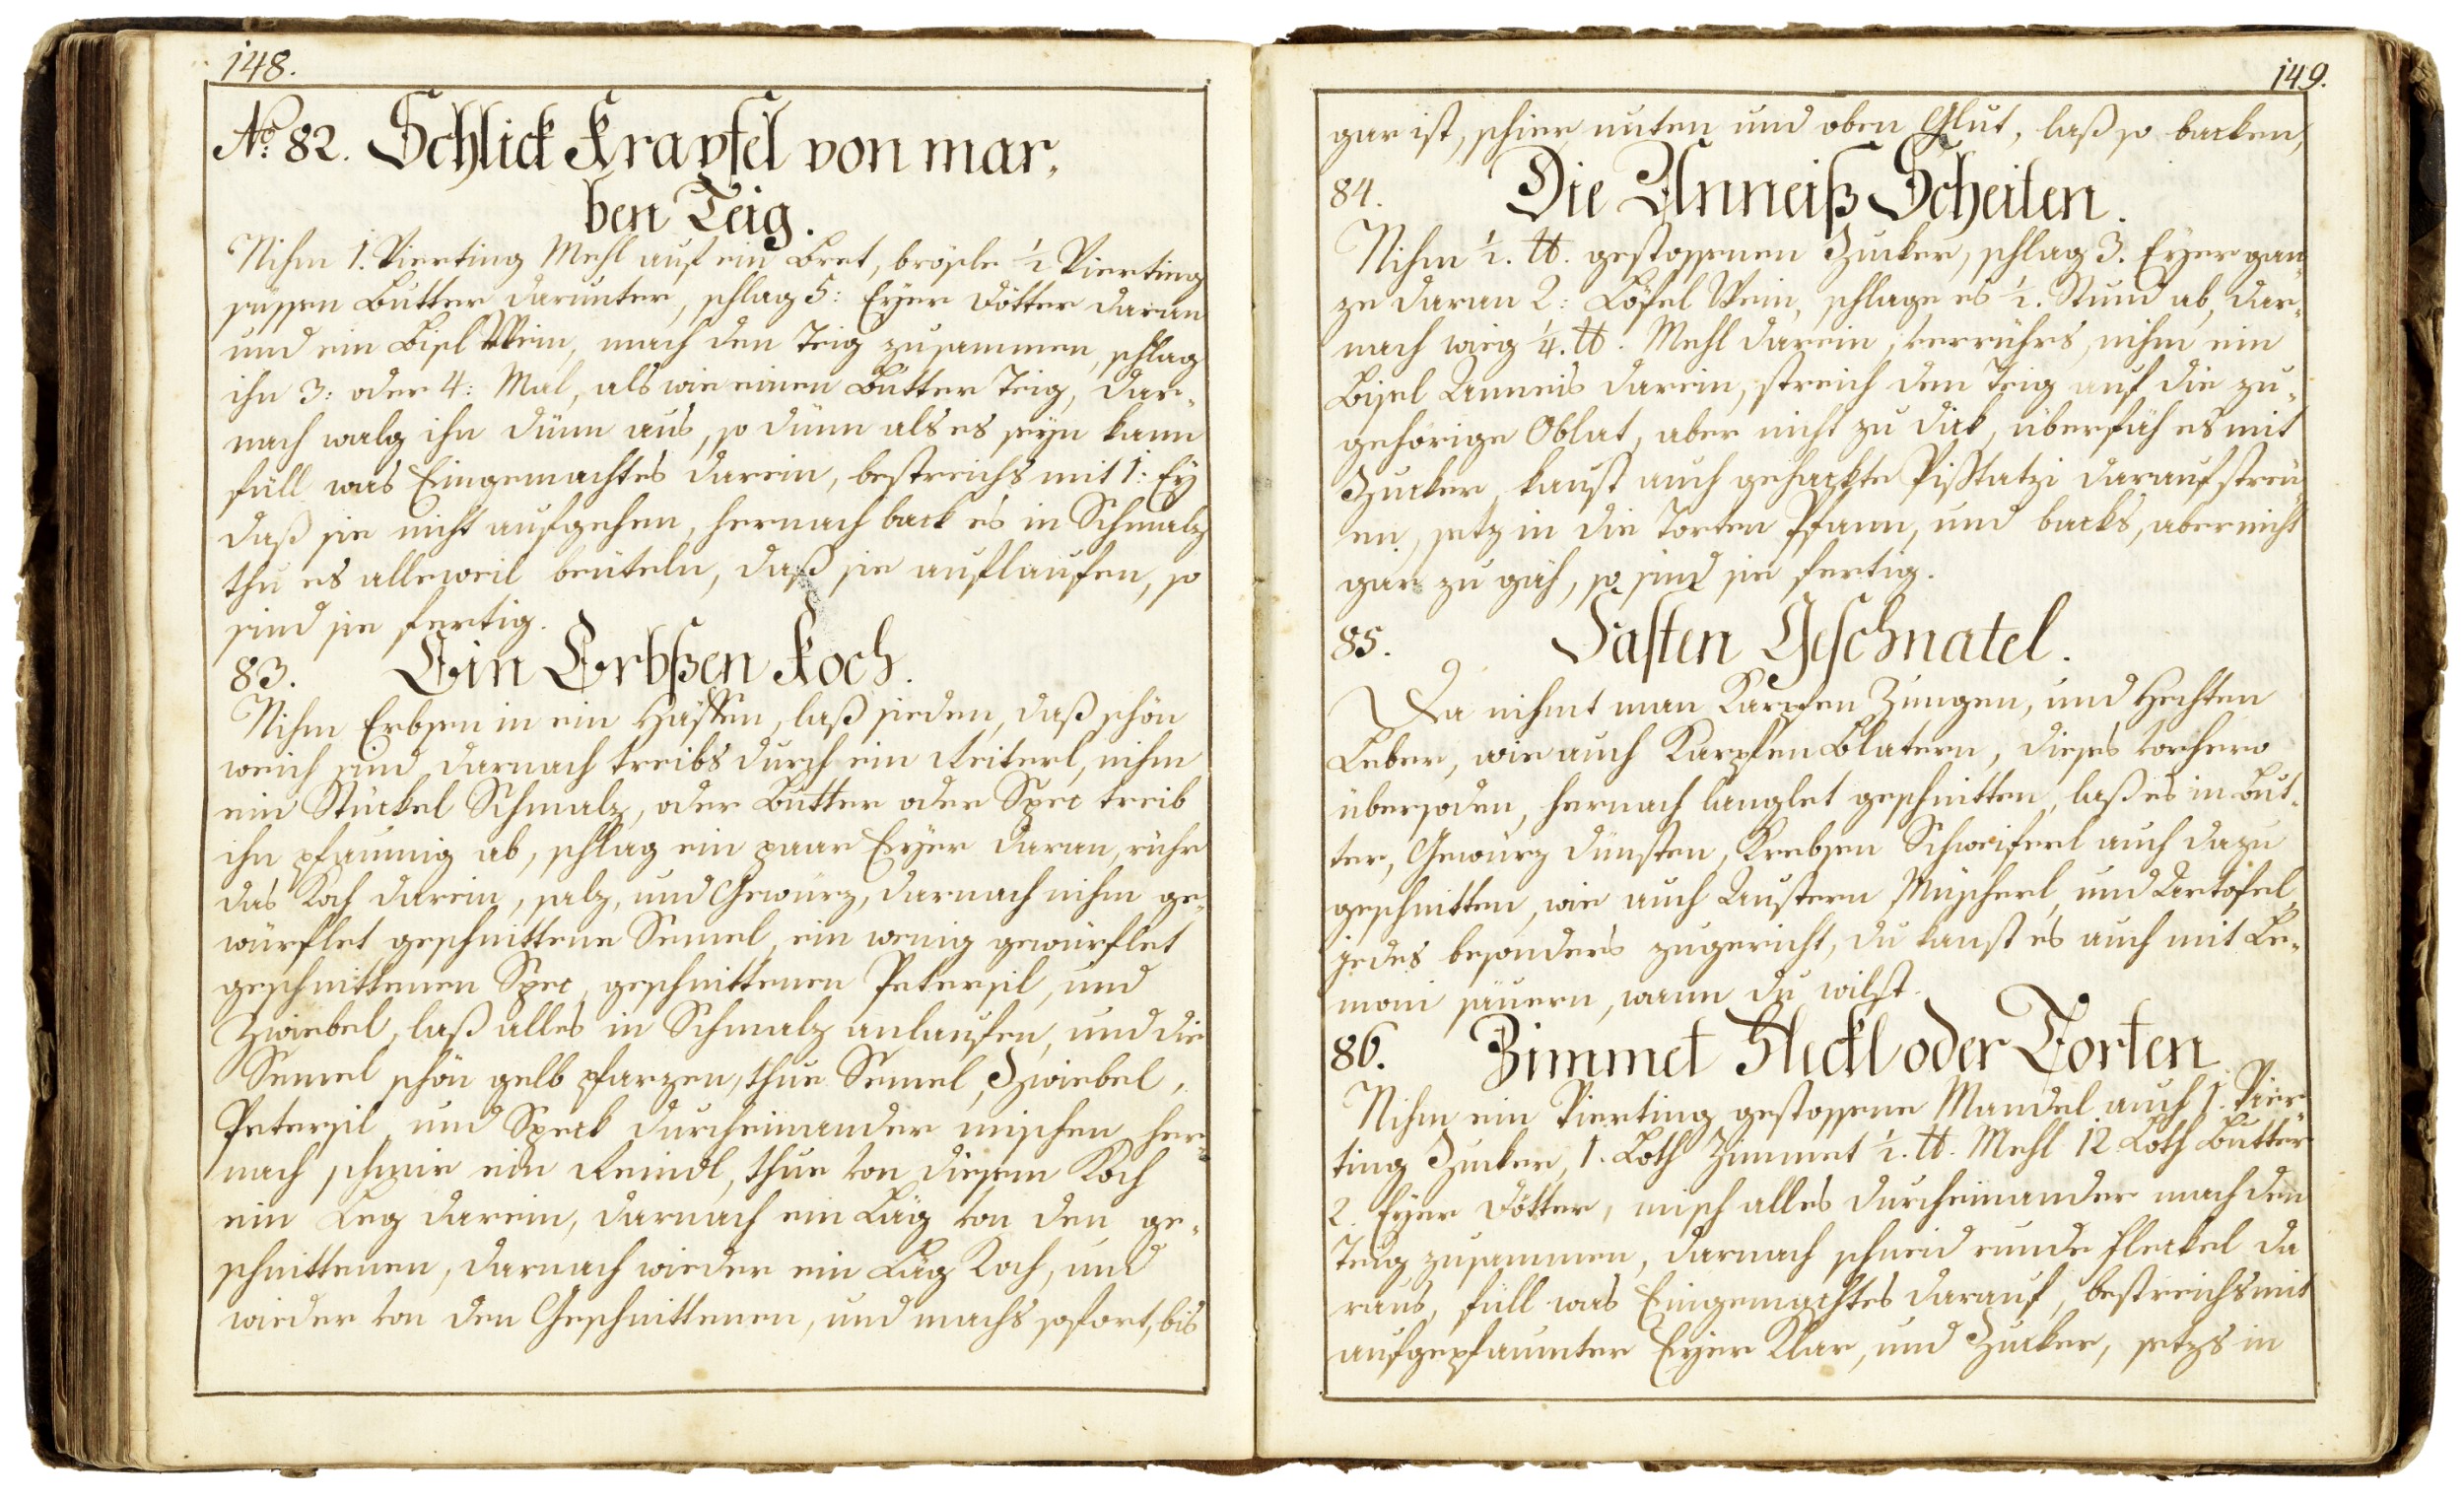 148.
No: 82. Schlick Krapfel von mar,
ben Teig.
Nihm 1. Vierting Mehl auf ein Bret, brösle ½ Vierting
süssen Butter darunter, schlag 5: Eÿer Dötter daran
und ein Bisl Wein, mach den Teig zusammen, schlag
ihn 3: oder 4: Mal, als wie einen Butter Teig, dar,
nach walg ihn dünn aus, so dünn als es seÿn kann
füll was Eingemachtes darein, bestreichs mit 1: Eÿ
daß sie nicht aufgehen, hernach back es in Schmalz
thu es alleweil beuteln, daß sie auflaufen, so
sind sie fertig.
83. Ein Erbßen Koch.
Nihm Erbsen in ein Häffen, laß sieden, daß schön
weich sind darnach treibs durch ein Reiterl, nihm
ein Stückel Schmalz, oder Butter oder Spec treib
ihn pfaumig ab, schlag ein paar Eÿer daran, rühr
das Koch darein, salz, und Gewürz, darnach nihm ge,
würflet geschnittene Semel, ein wenig gewürflet
geschnittenen Spec, geschnittenen Petersil, und
Zwiebel, laß alles in Schmalz anlaufen, und die
Semel schön gelb pfarzen, thue Semel, Zwiebel,
Petersil und Speck durcheinander mischen, her,
nach schmir ein Reindl, thue von diesem Koch
ein Leg darein, darnach ein Läg von den ge,
schnittenen, darnach wieder ein Läg Koch, und
wieder von den Geschnittenen, und machs sofort, bis
149.
gar ist, schier unten und oben Glut, laß so backen,
84. Die Anneiß Scheiten.
Nihm ½. ℔. gestossenen Zucker, schlag 3. Eÿer gan,
ze daran 2: Löfel Wein, schlage es ½. Stund ab, dar,
nach wieg ¼. ℔. Mehl darein, verrührs, nihm ein
Bisel Anneis darein, streich den Teig auf die zu,
gehörige Oblat, aber nicht zu dick, übersäh es mit
Zucker, kanst auch gehackte Pistatzi darauf streu
en, setz in die Torten Pfann, und backs, aber nicht
gar zu gäh, so sind sie fertig.
85. Fasten Geschnatel.
Da nihmt man Karpfen Zungen, und Hechten
Leber, wie auch Karpfen Blatern, dieses vorhero
übersoden, hernach langlet geschnitten, laß es in But,
ter, Gewürz dünsten, Krebsen Schweiferl auch dazu
geschnitten, wie auch Austern Müscherl, und Artofel
jedes besonders zugericht, du kanst es auch mit Le,
moni säuern, wann du wilst.
86. Zimmet Fleckl oder Torten
Nihm ein Vierting gestossene Mandel auch 1. Vier,
ting Zucker, 1. Loth Zimmet ½. ℔. Mehl 12 Loth Butter
2. Eÿer Dötter, misch alles durcheinander mach den
Teig zusammen, darnach schneid runde Fleckel da
raus, füll was Eingemachtes darauf, bestreichs mit
aufgepfaumter Eÿer Klar, und Zucker, setzs in